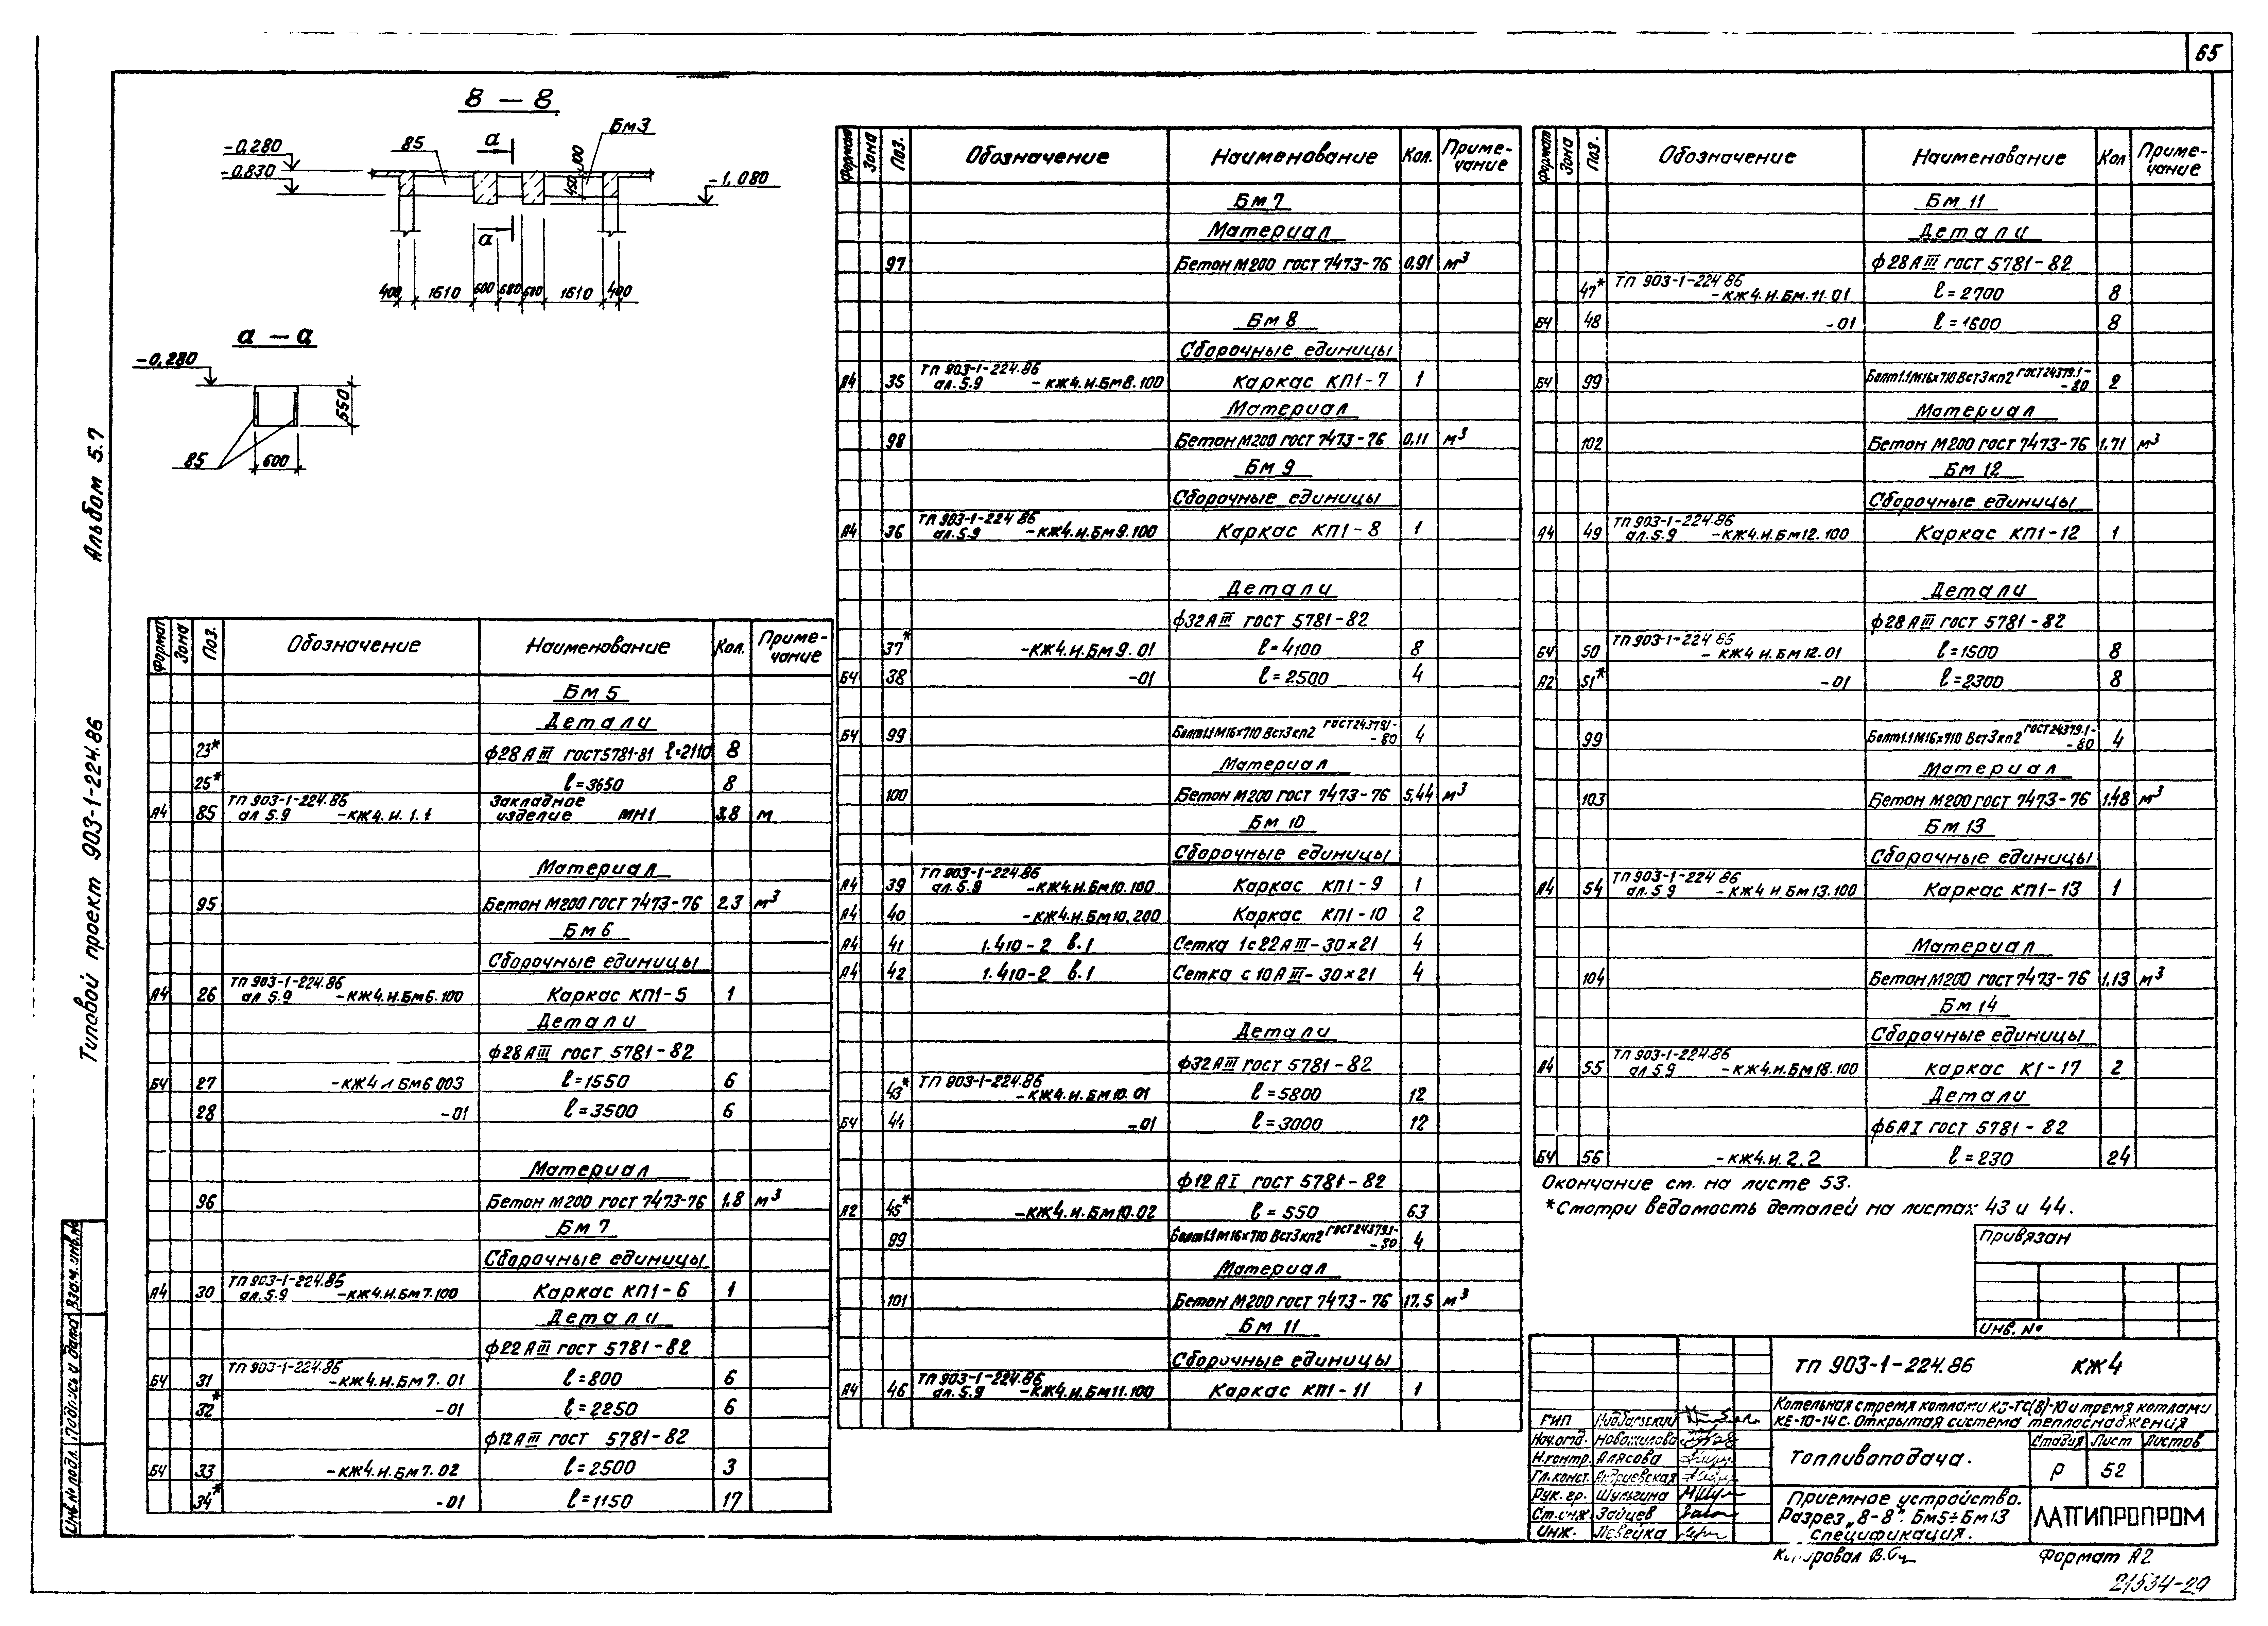 65
8 – 8
-0,280
-0,830
85
а
Бм3
100
450
-1,080
а
400 1610 600 680 600 1610 400
а – а
-0,280
550
85
600
Альбом 5.7
Типовой проект 903-1-224.86
Формат Зона Поз. Обозначение Наименование Кол. Приме-чание
Бм 5
Детали
23* ф28 А III ГОСТ 5781-81 ℓ=2110 8
25* ℓ=3650 8
А4 85 ТП 903-1-224.86 ал 5.9 -КЖ4.И.1.1 Закладное изделие МН1 3.8 м
Материал
95 Бетон М200 ГОСТ 7473-76 2.3 м³
Бм 6
Сборочные единицы
А4 26 ТП 903-1-224.86 ал 5.9 -КЖ4.И.Бм6.100 Каркас КП1-5 1
Детали
ф28 А III ГОСТ 5781-82
БЧ 27 -КЖ4 Л Бм6 003 ℓ=1550 6
28 -01 ℓ=3500 6
Материал
96 Бетон М200 ГОСТ 7473-76 1,8 м³
Бм 7
Сборочные единицы
А4 30 ТП 903-1-224.86 ал.5.9 -КЖ4.И.Бм7.100 Каркас КП1-6 1
Детали
ф22 А III ГОСТ 5781-82
БЧ 31 ТП 903-1-224.86 -КЖ4.И.Бм7.01 ℓ=800 6
32* -01 ℓ=2250 6
ф12 А III ГОСТ 5781-82
БЧ 33 -КЖ4.И.Бм7.02 ℓ=2500 3
34* -01 ℓ=1150 17
Формат Зона Поз. Обозначение Наименование Кол. Приме-чание
Бм 7
Материал
97 Бетон М200 ГОСТ 7473-76 0,91 м³
Бм 8
Сборочные единицы
А4 35 ТП 903-1-224.86 ал.5.9 -КЖ4.И.Бм8.100 Каркас КП1-7 1
Материал
98 Бетон М200 ГОСТ 7473-76 0,11 м³
Бм 9
Сборочные единицы
А4 36 ТП 903-1-224.86 ал.5.9 -КЖ4.И.Бм9.100 Каркас КП1-8 1
Детали
ф32 А III ГОСТ 5781-82
37* -КЖ4.И.Бм9.01 ℓ=4100 8
БЧ 38 -01 ℓ=2500 4
БЧ 99 Болт1.1М16х710 ВСт3кп2 ГОСТ24379.1-80 4
Материал
100 Бетон М200 ГОСТ 7473-76 5,44 м³
Бм 10
Сборочные единицы
А4 39 ТП 903-1-224.86 ал.5.9 -КЖ4.И.Бм10.100 Каркас КП1-9 1
А4 40 -КЖ4.И.Бм10.200 Каркас КП1-10 2
А4 41 1.410-2 в.1 Сетка 1с22 А III-30х21 4
А4 42 1.410-2 в.1 Сетка с10 А III-30х21 4
Детали
ф32 А III ГОСТ 5781-82
43* ТП 903-1-224.86 -КЖ4.И.Бм10.01 ℓ=5800 12
БЧ 44 -01 ℓ=3000 12
ф12 А I ГОСТ 5781-82
А2 45* -КЖ4.И.Бм10.02 ℓ=550 63
99 Болт1.1М16х710 ВСт3кп2 ГОСТ24379.1-80 4
Материал
101 Бетон М200 ГОСТ 7473-76 17.5 м³
Бм 11
Сборочные единицы
А4 46 ТП 903-1-224.86 ал.5.9 -КЖ4.И.Бм11.100 Каркас КП1-11 1
Формат Зона Поз. Обозначение Наименование Кол Приме-чание
Бм 11
Детали
ф28 А III ГОСТ 5781-82
47* ТП 903-1-224.86 -КЖ4.И.Бм.11.01 ℓ=2700 8
БЧ 48 -01 ℓ=1600 8
БЧ 99 Болт1.1М16х710 ВСт3кп2 ГОСТ24379.1-80 2
Материал
102 Бетон М200 ГОСТ 7473-76 1,71 м³
Бм 12
Сборочные единицы
А4 49 ТП 903-1-224.86 ал.5.9 -КЖ4.И.Бм12.100 Каркас КП1-12 1
Детали
ф28 А III ГОСТ 5781-82
БЧ 50 ТП 903-1-224.86 -КЖ4 И.Бм12.01 ℓ=1500 8
А2 51* -01 ℓ=2300 8
99 Болт1.1М16х710 ВСт3кп2 ГОСТ24379.1-80 4
Материал
103 Бетон М200 ГОСТ 7473-76 1,48 м³
Бм 13
Сборочные единицы
А4 54 ТП 903-1-224.86 ал 5.9 -КЖ4 И Бм13.100 Каркас КП1-13 1
Материал
104 Бетон М200 ГОСТ 7473-76 1,13 м³
Бм 14
Сборочные единицы
А4 55 ТП 903-1-224.86 ал 5.9 -КЖ4.И.Бм18.100 Каркас К1-17 2
Детали
ф6 А I ГОСТ 5781-82
БЧ 56 -КЖ4.И.2.2 ℓ=230 24
Окончание см. на листе 53.
*Смотри ведомость деталей на листах 43 и 44.
Привязан
Инв. №
ТП 903-1-224.86 КЖ4
Котельная с тремя котлами КВ-ТС(В)-10 и тремя котлами
КЕ-10-14С. Открытая система теплоснабжения
Топливоподача.
Стадия Лист Листов
Р 52
Приемное устройство.
Разрез „8-8“. Бм5÷Бм13
спецификация.
ЛАТГИПРОПРОМ
ГИП
Нач.отд. Новожилова
Н.контр. Алясова
Гл.конст. Андриевская
Рук. гр. Шульгина
Ст.инж Зайцев
Инж. Левейка
Копировал
Формат А2
21534-29
Инв.№ подл. Подпись и дата Взам.инв.№